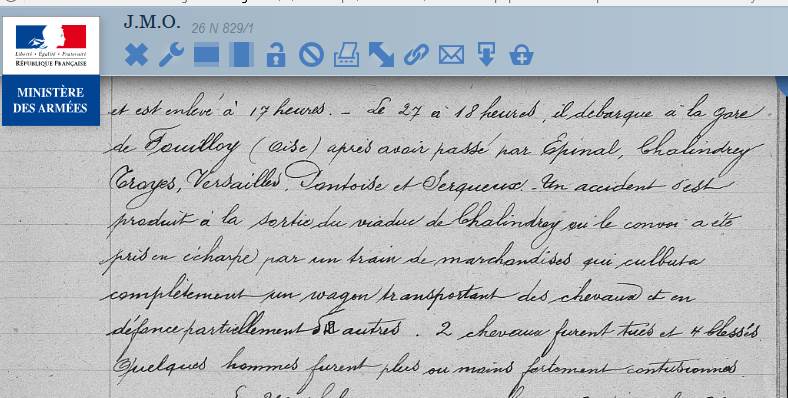 J.M.O. 26 N 829/1
Liberté • Égalité • Fraternité
RÉPUBLIQUE FRANÇAISE
MINISTÈRE
DES ARMÉES
et est enlevé à 17 heures. - Le 27 à 18 heures, il debarque à la gare
de Fouilloy (Oise) après avoir passé par Epinal, Chalindrey
Troyes, Versailles, Pontoise et Serqueux. - Un accident s'est
produit à la sortie du viaduc de Chalindrey où le convoi a été
pris en écharpe par un train de marchandises qui culbuta
complètement un wagon transportant des chevaux et en
défonce partiellement autres. 2 chevaux furent tués et 4 blessés
Quelques hommes furent plus ou moins fortement contusionnés.